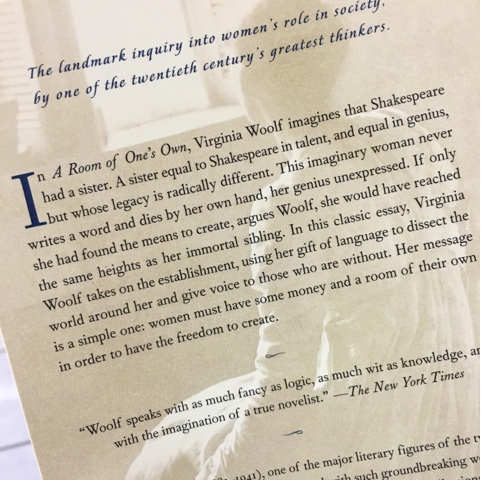 The landmark inquiry into women's role in society,
by one of the twentieth century's greatest thinkers.
In A Room of One's Own, Virginia Woolf imagines that Shakespeare
had a sister. A sister equal to Shakespeare in talent, and equal in genius,
but whose legacy is radically different. This imaginary woman never
writes a word and dies by her own hand, her genius unexpressed. If only
she had found the means to create, argues Woolf, she would have reached
the same heights as her immortal sibling. In this classic essay, Virginia
Woolf takes on the establishment, using her gift of language to dissect the
world around her and give voice to those who are without. Her message
is a simple one: women must have some money and a room of their own
in order to have the freedom to create.
"Woolf speaks with as much fancy as logic, as much wit as knowledge, and
with the imagination of a true novelist." —The New York Times
1941), one of the major literary figures of the
with such groundbreaking